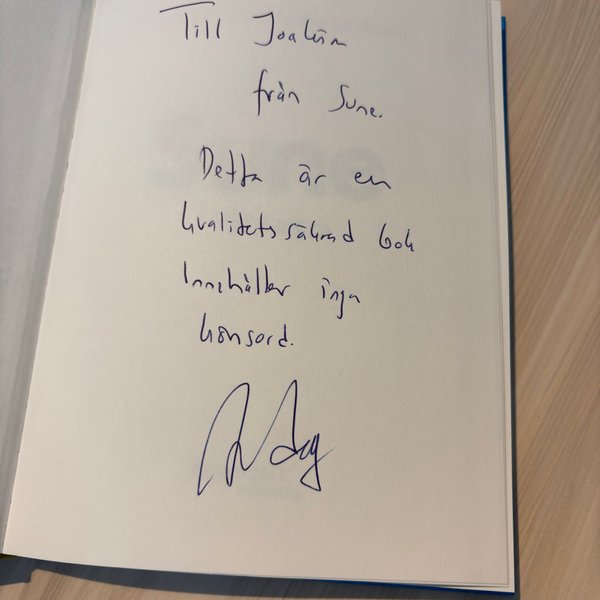 Till Joakim
från Sune.
Detta är en
kvalitetssäkrad bok
Innehåller inga
könsord.